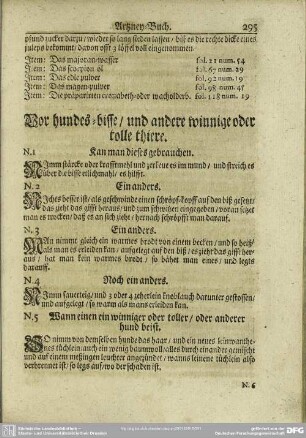 Artzney-Buch. 295
pfund zucker darzu / wieder so lang sieden lassen / biß es die rechte dicke eines
juleps bekommt / davon offt 3 löffel voll eingenommen
Item: Das majoran-wasser fol. 21 num. 54
Item: Das scorpion öl fol. 67 num. 29
Item: Das edle pulver fol. 92 num. 19
Item: Das magen-pulver fol. 98 num. 48
Item: Die präparirten cronabeth- oder wacholderb. fol. 118 num. 19
Vor hundes-bisse / und andere winnige oder
tolle thiere.
N.1 Kan man dieses gebrauchen.
Nimm stärcke oder krafftmehl und zerkeue es im mund / und streich es
über die bisse etlichmahl / es hilfft.
N.2 Ein anders.
Nichts besser ist / als geschwinde einen schröpf-kopff auf den biß gesetzt /
das zieht das gifft heraus / und zum schwitzen eingegeben / vor an setzet
man es trocken / daß er an sich zieht / hernach schröpfft man darauf.
N.3 Ein anders.
Man nimmt gleich ein warmes brodt von einem becken / und so heiß /
als man es erleiden kan / aufgelegt auf den biß / es zieht das gifft her-
aus / hat man kein warmes brodt / so bähet man eines / und legts
darauff.
N.4 Noch ein anders.
Nimm sauerteig / und 3 oder 4 zeherlein knoblauch darunter gestossen /
und aufgelegt / so warm als mans erleiden kan.
N.5 Wann einen ein winniger oder toller / oder anderer
hund beist.
So nimm von demselben hunde das haar / und ein neues leinwanthe-
nes tüchlein / auch ein wenig baumwoll / alles durch einander gemischt
und auf einem meßingen leuchter angezündet / wanns leinene tüchlein aber
verbrennt ist / so legs auf / wo der schaden ist.
N. 6